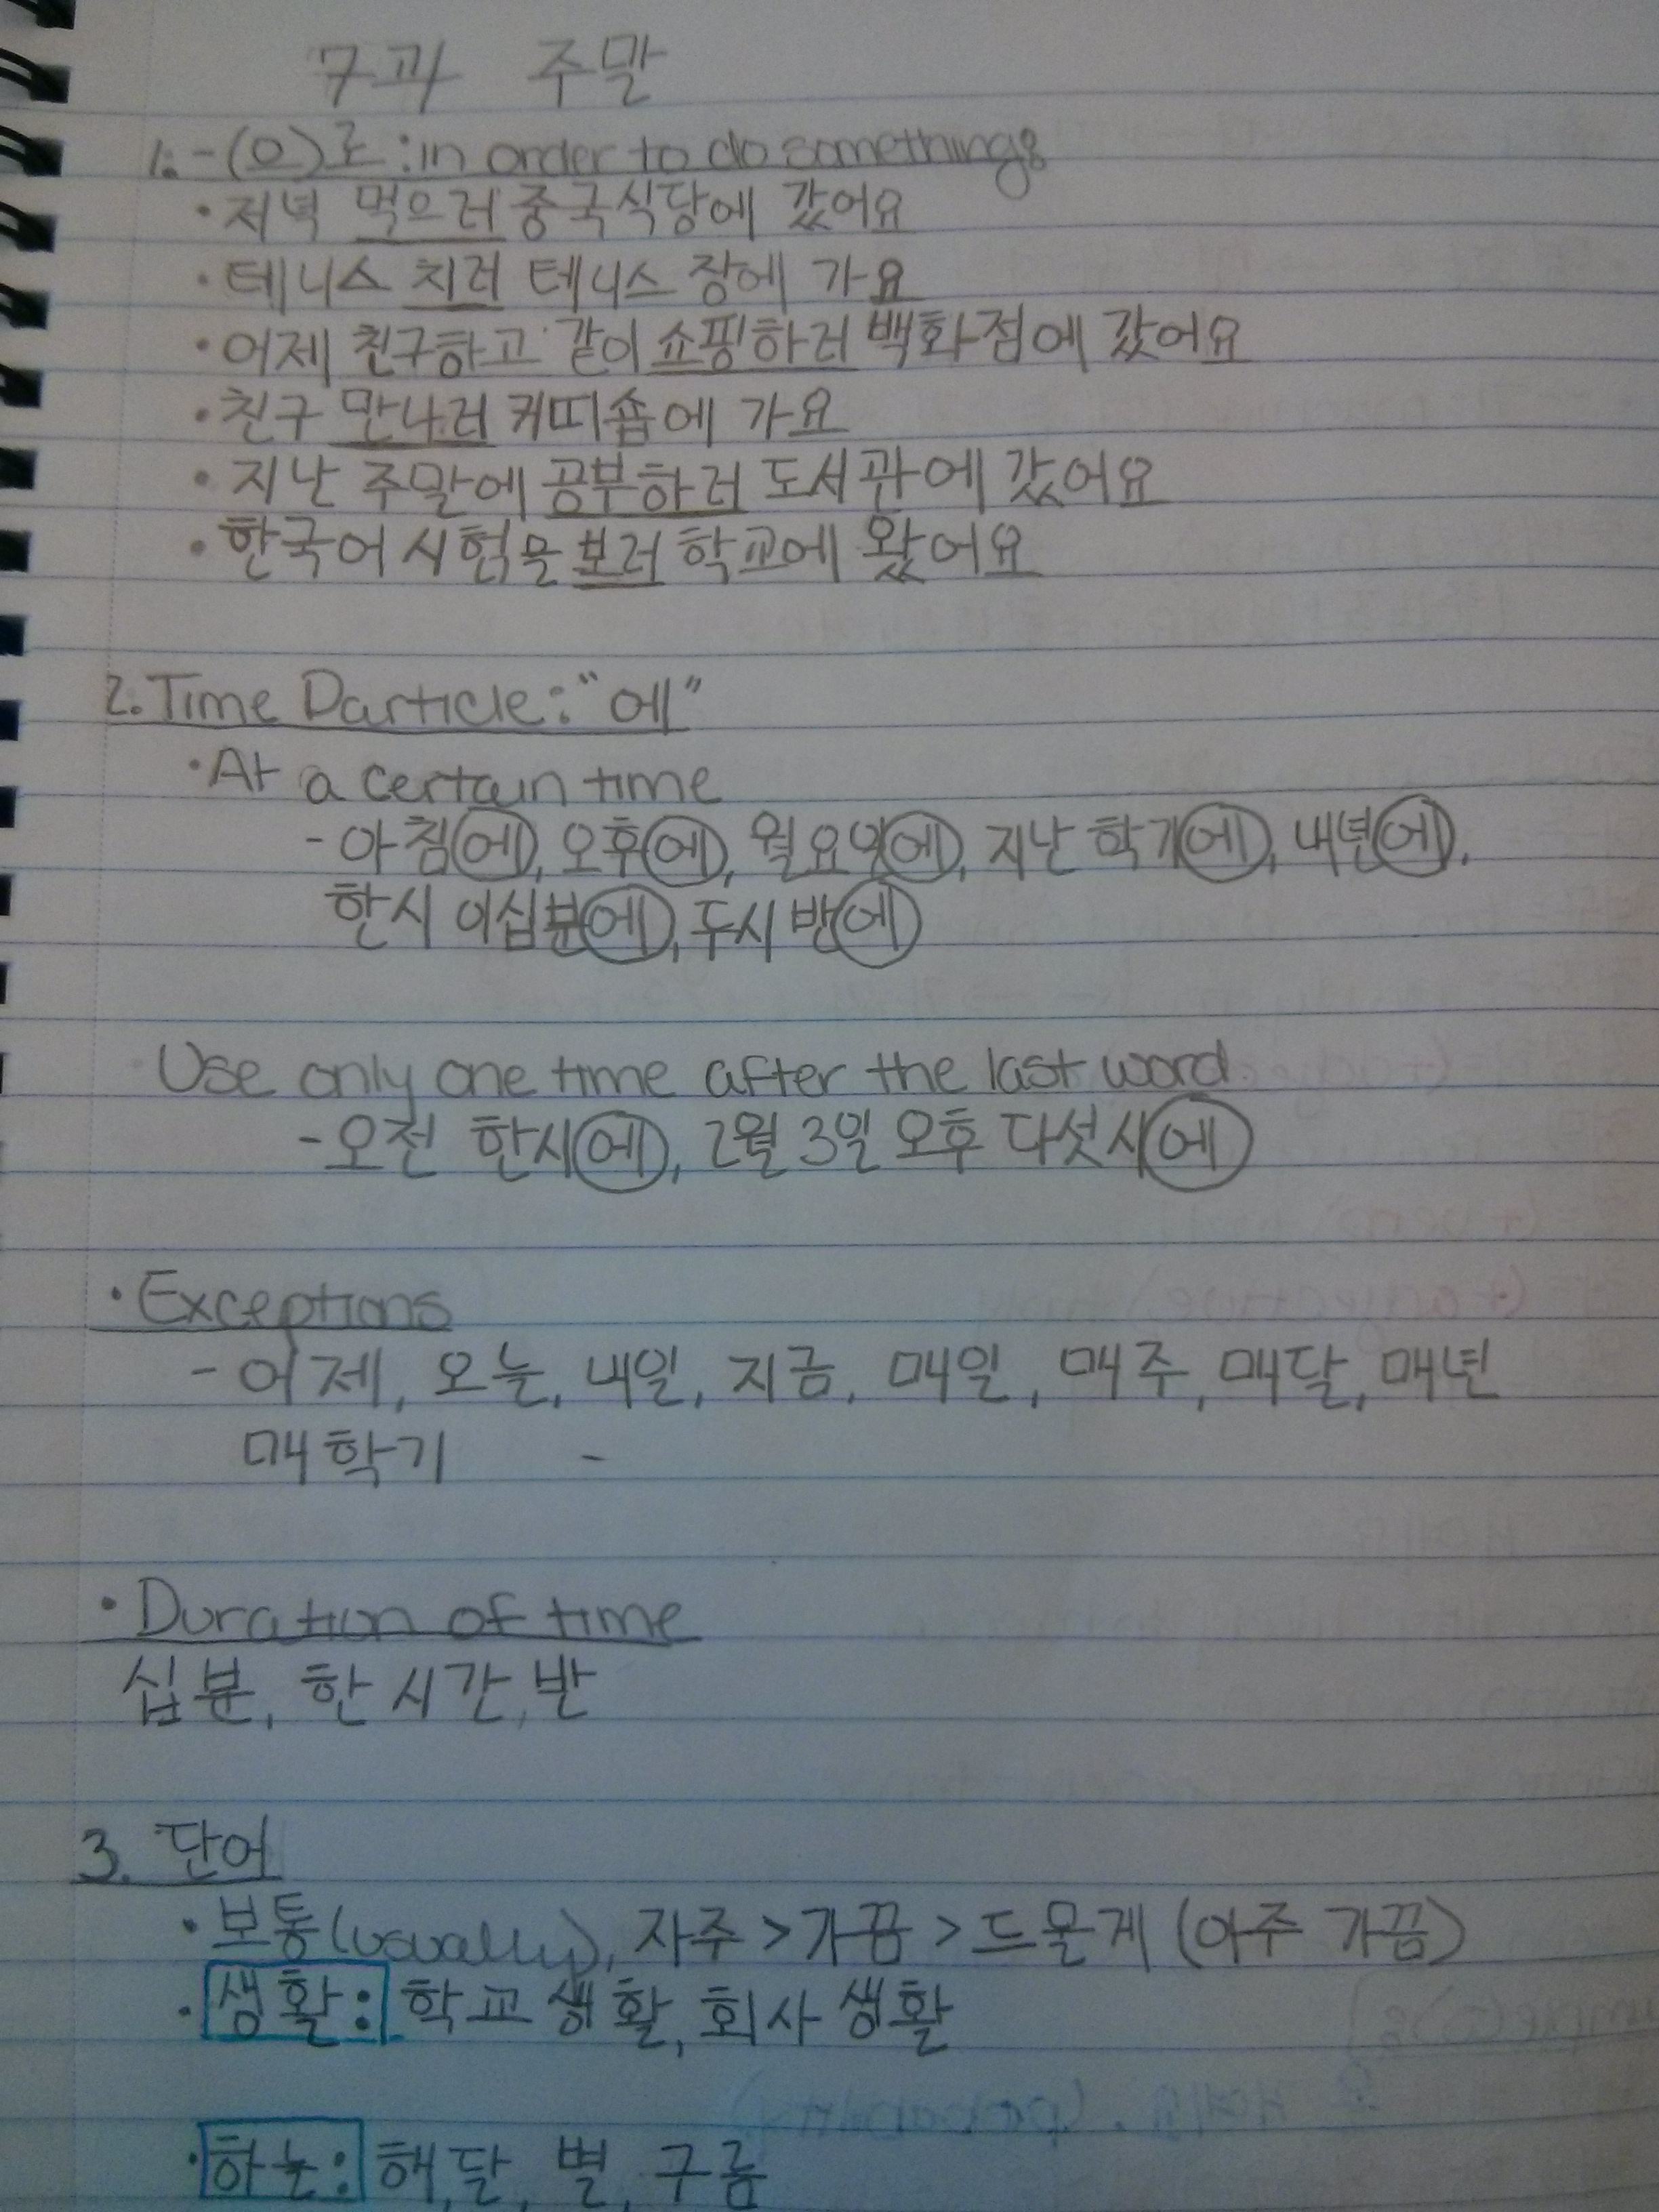 7과 주말
1. -(으)로 : in order to do something:
· 저녁 먹으러 중국식당에 갔어요
· 테니스 치러 테니스 장에 가요
· 어제 친구하고 같이 쇼핑하러 백화점에 갔어요
· 친구 만나러 커띠숍에 가요
· 지난 주말에 공부하러 도서관에 갔어요
· 한국어 시험을 보러 학교에 왔어요
2. Time Particle: "에"
· At a certain time
- 아침에, 오후에, 월요일에, 지난 학기에, 내년에,
한시 이십분에, 두시 반에
Use only one time after the last word
- 오전 한시에, 2월 3일 오후 다섯시에
· Exceptions
- 어제, 오늘, 내일, 지금, 매일, 매주, 매달, 매년
매학기 -
· Duration of time
십분, 한 시간, 반
3. 단어
· 보통 (usually), 자주 > 가끔 > 드물게 (아주 가끔)
· 생활: 학교 생활, 회사 생활
· 하눈: 해, 달, 별, 구름